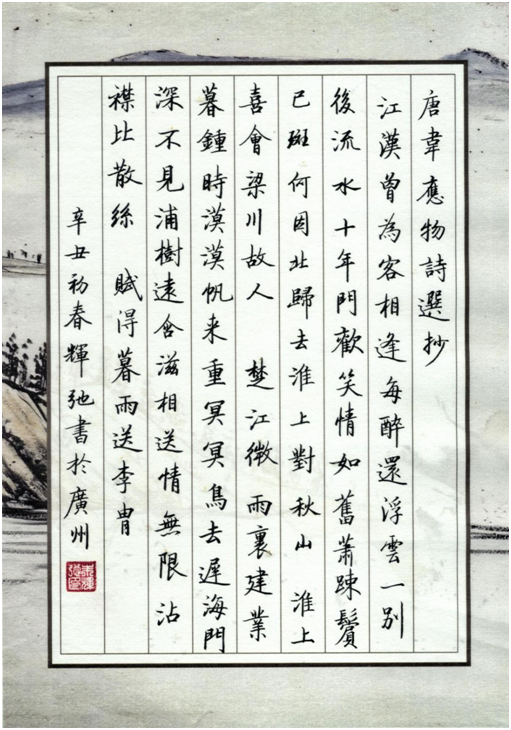 唐韋應物詩選抄
江漢曾為客相逢每醉還浮雲一别
後流水十年門歡笑情如舊蕭踈鬢
已斑何因北歸去淮上對秋山 淮上
喜會梁川故人 楚江微雨裏建業
暮鍾時漠漠帆来重冥冥鳥去遲海門
深不見浦樹遠含滋相送情無限沾
襟比散絲 賦得暮雨送李胄
辛丑初春輝弛書於廣州